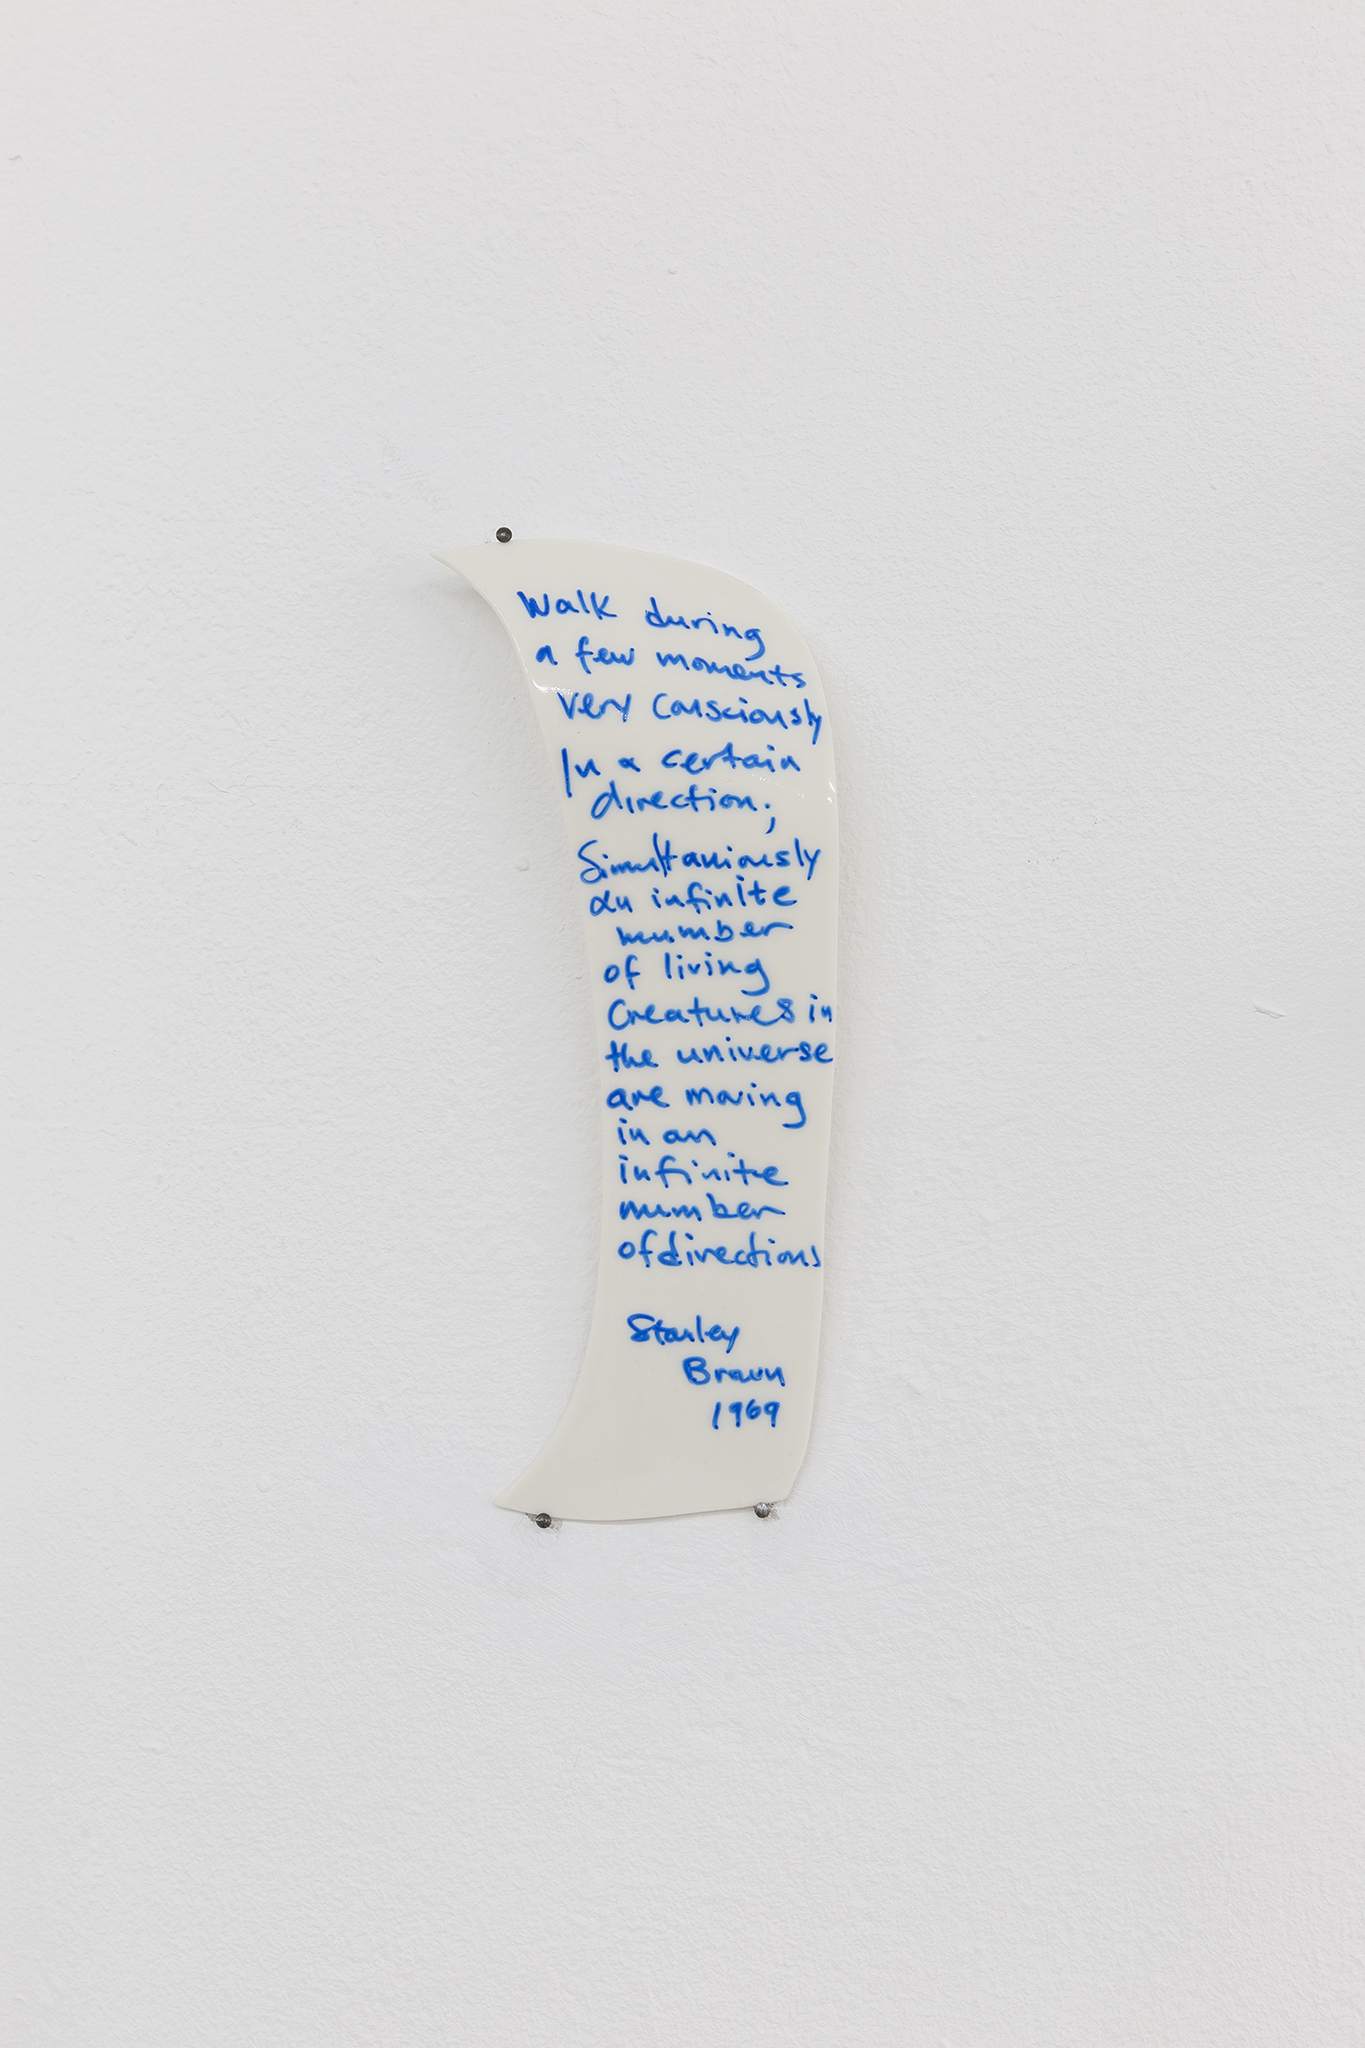 Walk during
a few moments
very consciously
In a certain
direction;
Simultaniously
an infinite
number
of living
Creatures in
the universe
are moving
in an
infinite
number
of directions
Stanley
Broun
1969